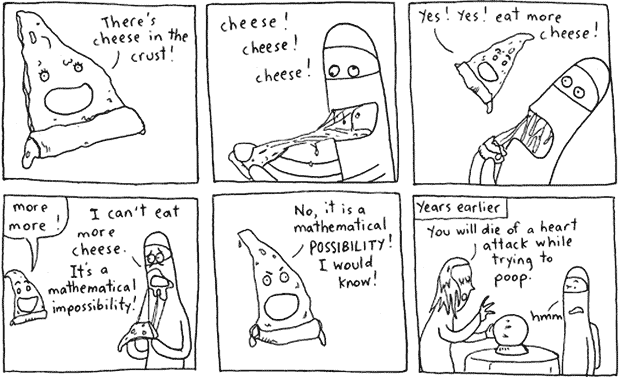 There's
cheese in the
crust!
cheese!
cheese!
cheese!
Yes! Yes! eat more
cheese!
more
more!
I can't eat
more
cheese.
It's a
mathematical
impossibility!
No, it is a
mathematical
POSSIBILITY!
I would
know!
Years earlier
You will die of a heart
attack while
trying to
poop.
hmm